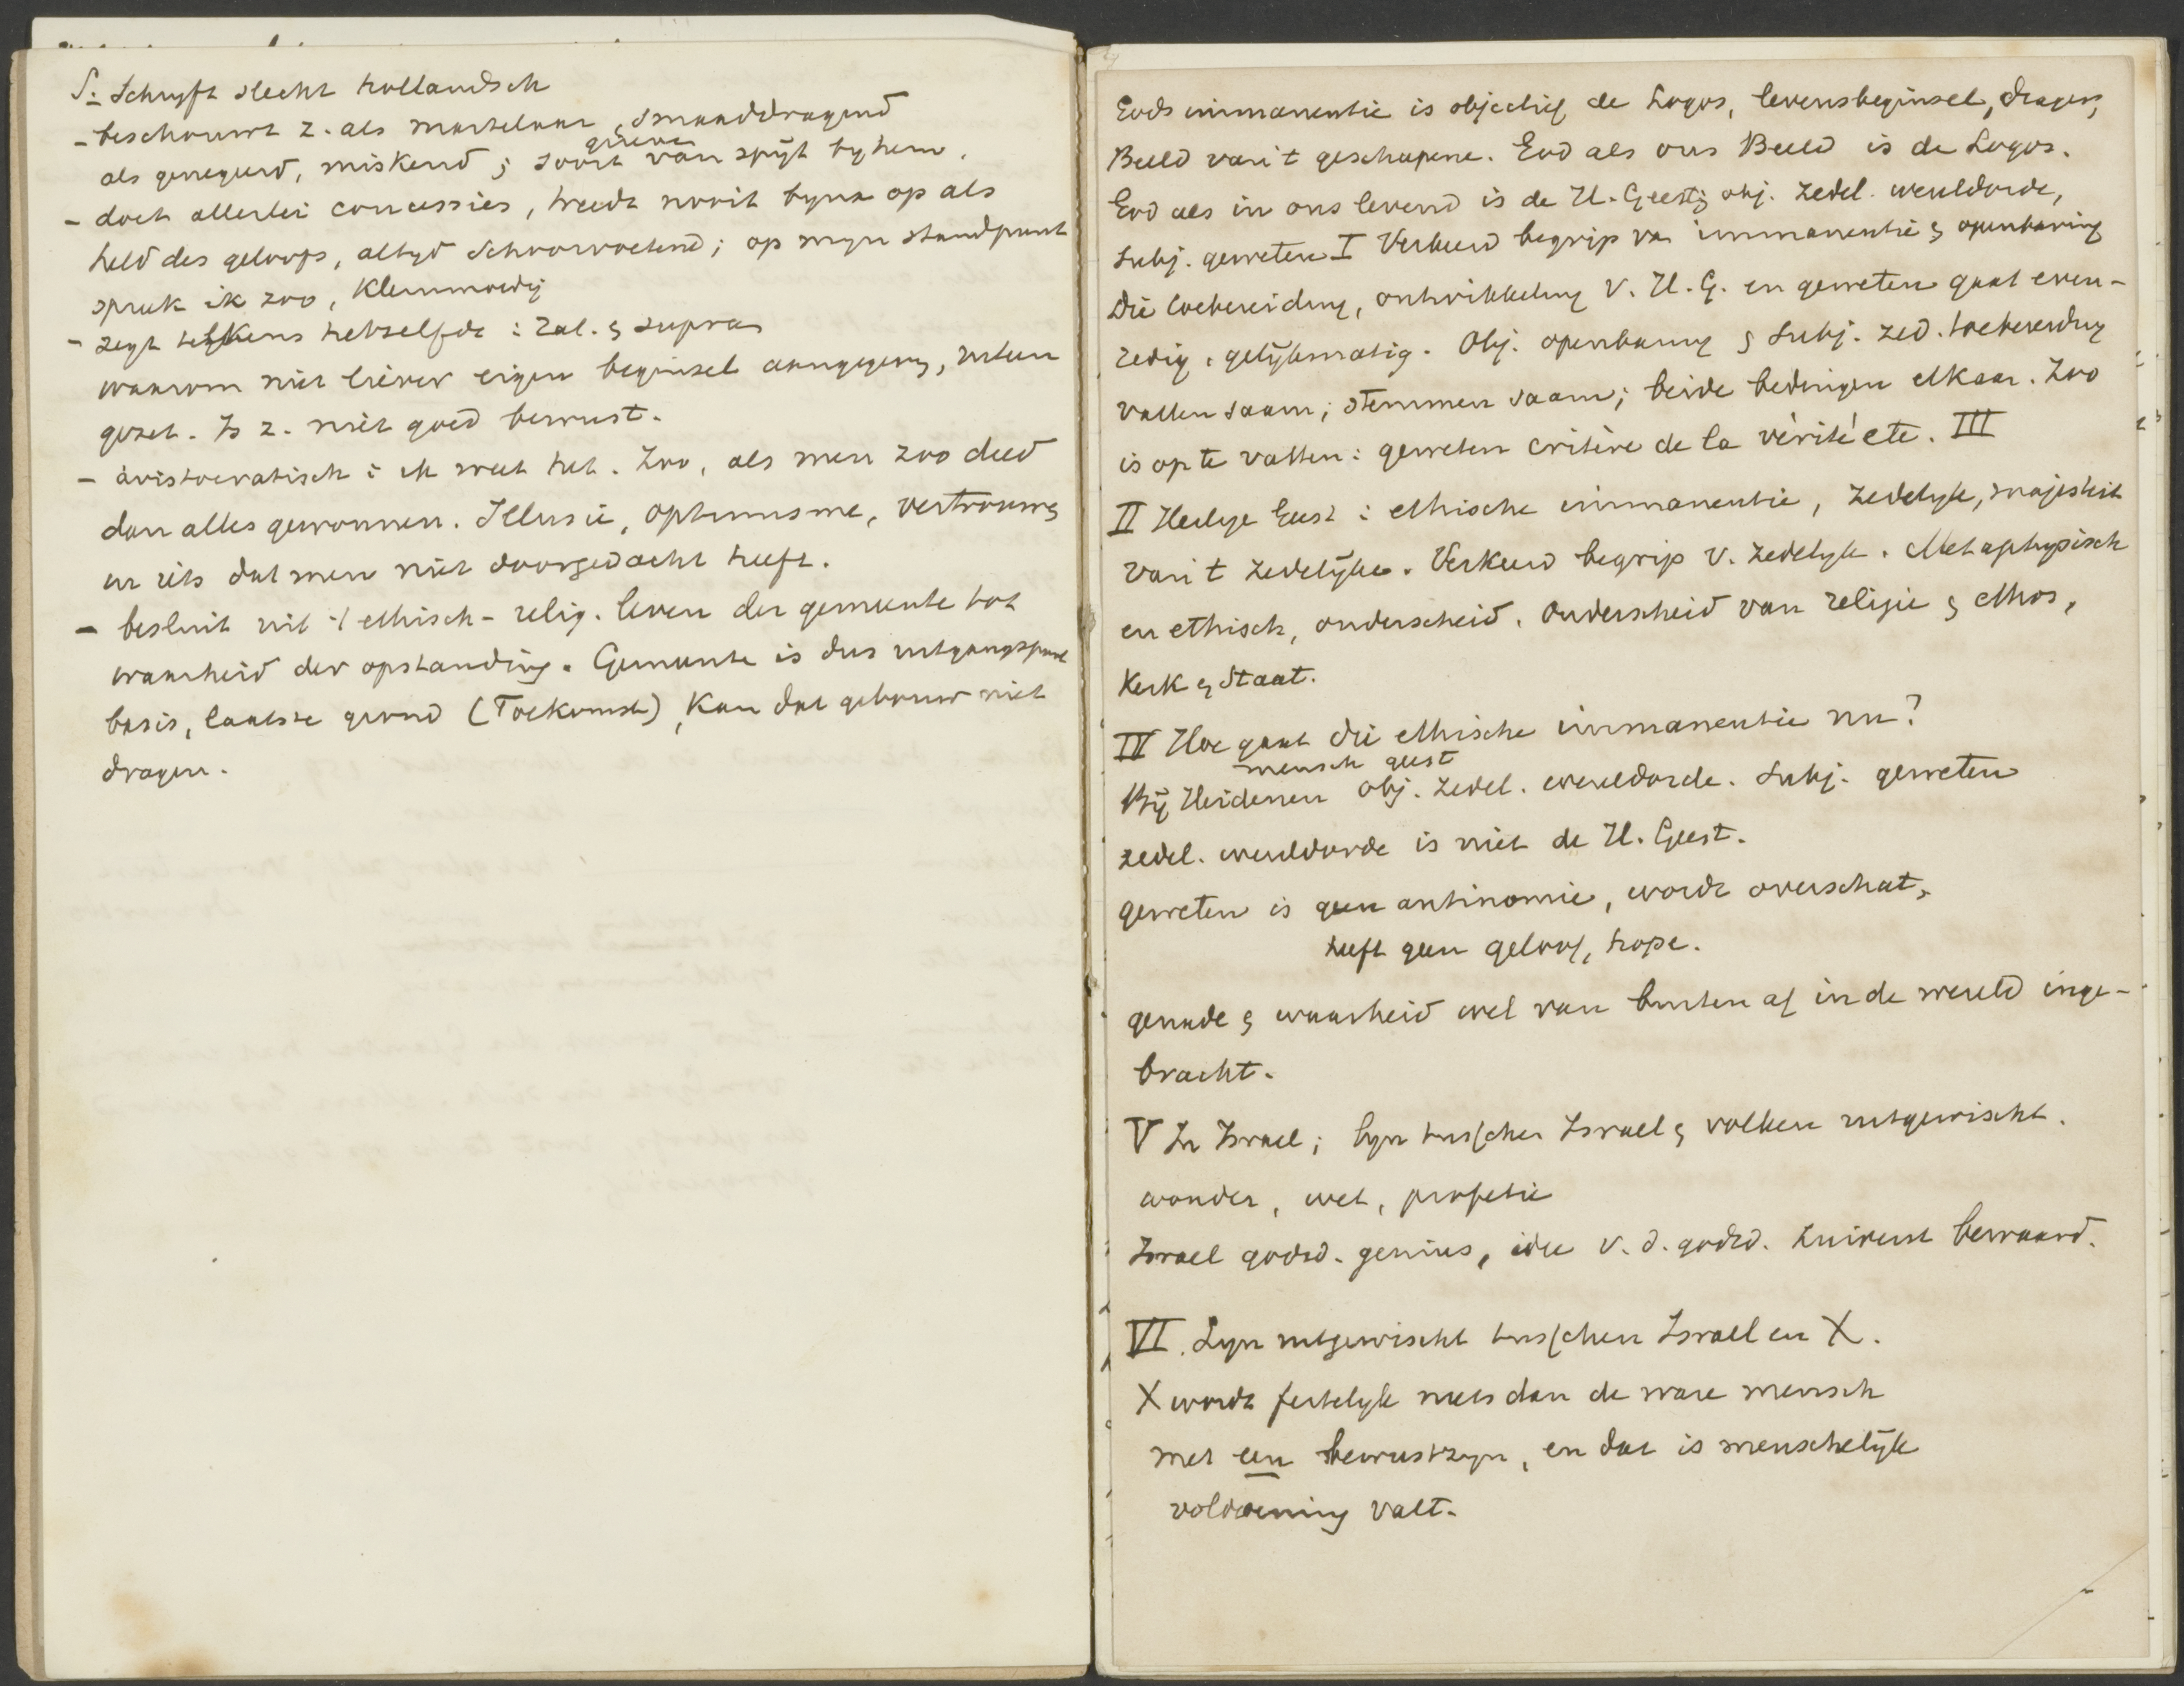 S. Schryft slecht hollandsch
- beschouwt z. als martelaar, smaaddragend
als genegeerd, miskend; soort van spijt by hem.
- doet allerlei concessies, treedt nooit byna op als
held des geloofs, altyd schoorvoetend; op myn standpunt
spreek ik zoo, kleinmoedig
- zegt telkens hetzelfde: Zal. & supra
waarom niet liever eigen beginsel aangegeven, uiteen
gezet. Is z. niet goed bewust.
- aristocratisch: ik weet het. Zoo, als men zoo deed
dan alles gewonnen. Illusie, optimisme, vertrouwen
in iets dat men niet doorgedacht heeft.
- besluit uit 't ethisch-relig. leven der gemeente tot
waarheid der opstanding. Gemeente is dus uitgangspunt
basis, laatste grond (Toekomst), kan dat gebouw niet
dragen.
Gods immanentie is objectief de Logos, levensbeginsel, drager,
Beeld van 't geschapene. God als ons Beeld is de Logos.
God als in ons levend is de H. Geest; obj. zedel. wereldorde,
subj. geweten I Verkeerd begrip van immanentie & openbaring
Die toebereiding, ontwikkeling v. H. G. en geweten gaat even-
redig, gelijkmatig. Obj. openbaring & subj. zed. toebereiding
vallen saam; stemmen saam; beide bedingen elkaar. Zoo
is op te vatten: geweten critère de la vérité etc. III
II Heilige Geest: ethische immanentie, zedelyk, majesteit
van 't zedelijke. Verkeerd begrip v. zedelyk. Metaphysisch
en ethisch, onderscheid. Onderscheid van religie & ethos,
Kerk & Staat.
IV Hoe gaat die ethische immanentie nu?
mensch geest
Bij Heidenen obj. zedel. wereldorde. subj. geweten
zedel. wereldorde is niet de H. Geest.
geweten is geen antinomie, wordt overschat,
heeft geen geloof, hope.
genade & waarheid wel van buiten af in de wereld inge-
bracht.
V In Israel; lyn tusschen Israel & volken uitgewischt.
wonder, wet, profetie
Israel godsd. genius, idee v. d. godsd. zuiverst bewaard.
VI. Lyn uitgewischt tusschen Israel en X.
X wordt feitelyk niets dan de ware mensch
met een bewustzyn, en dat is menschelijk
voldoening valt.